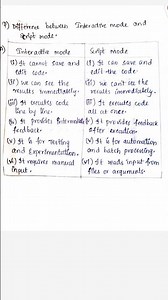 7) Difference between Interactive mode and
Script mode.
Interactive mode
Script mode
(i) It cannot save and
edit code.
(i) It can save and
edit the code.
(ii) we can see the
results immediately.
(ii) we can't see the
results immediately.
(iii) It executes code
line by line.
(iii) It executes code
all at once.
(iv) It provides
feedback.
(iv) It provides feedback
after execution
(v) It is for testing
and Experimentation.
(v) It is for automation
and batch processing.
(vi) It requires manual
input.
(vi) It reads input from
files or arguments.